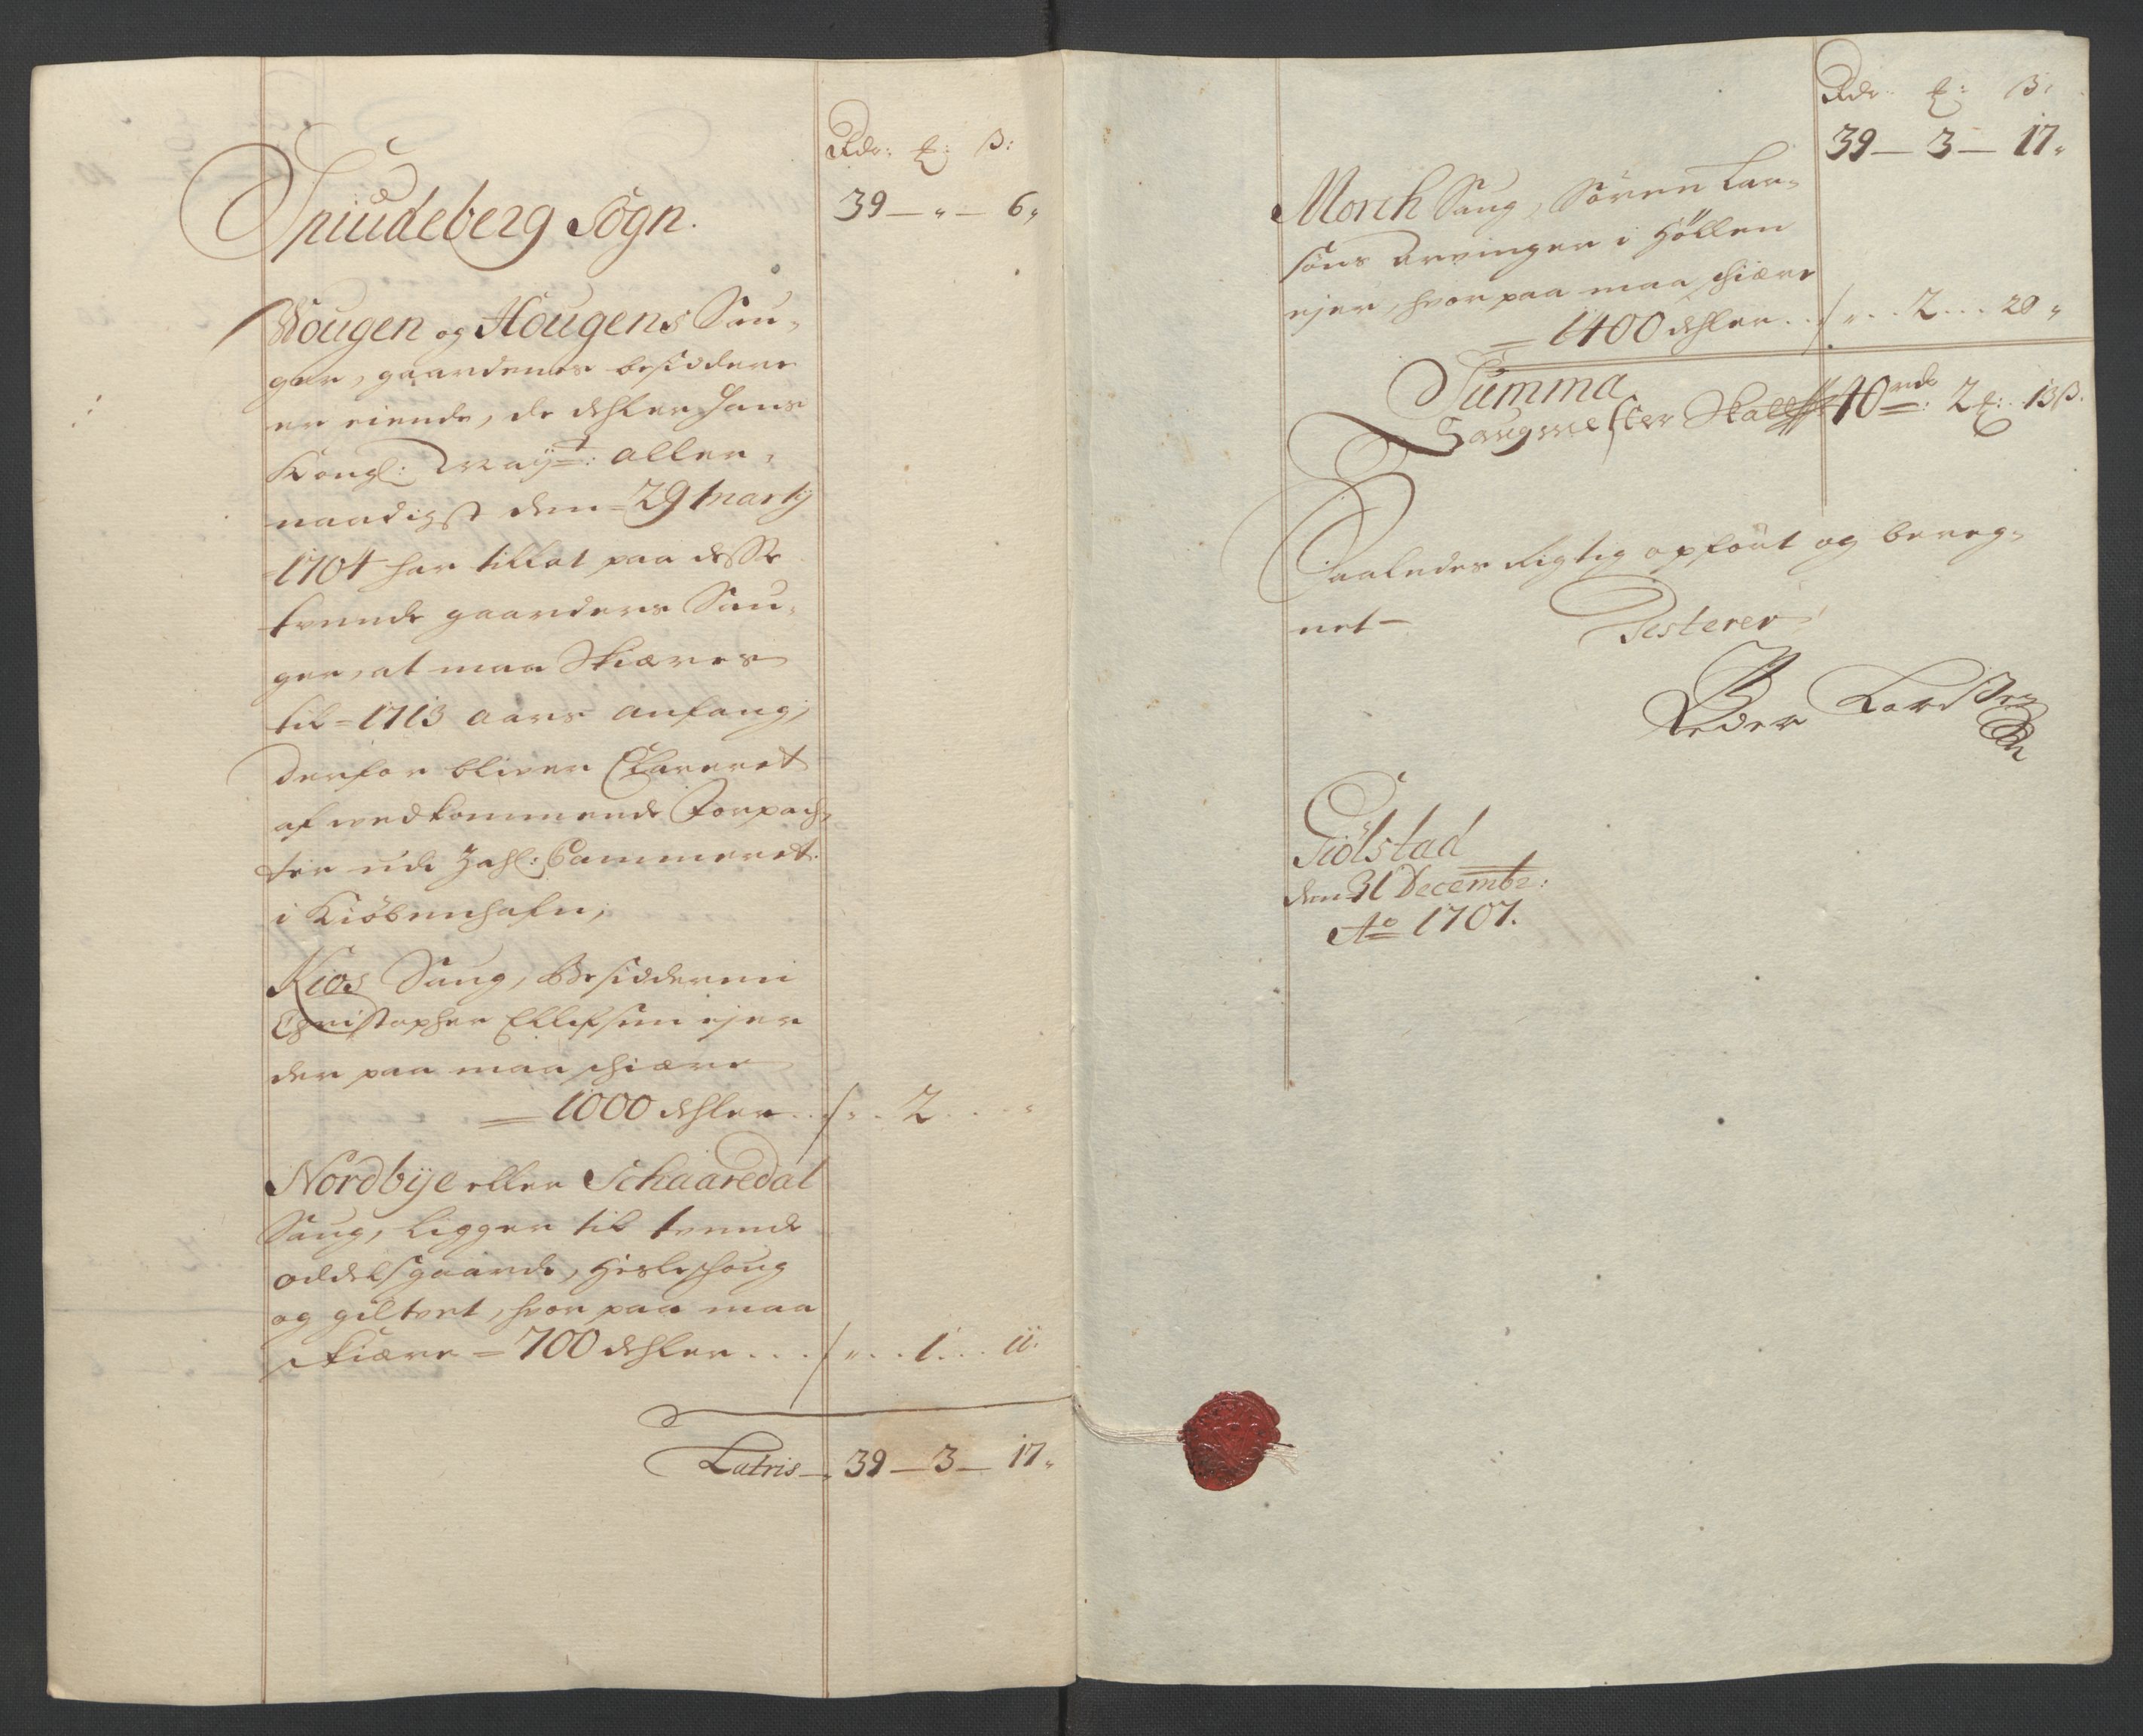 Rdr: ℔: ß:
39 — „ — 6„
Spiudeberg Sogn.
Wougen og Hougens Sau-
ger, gaardenes besiddere
er eiende, de dehler Hans
Kongl: Mayt: aller-
naadigst den 29 Marty
1704 har tillat paa desse
tvende gaarders Sau-
ger, at maa Skiæres
til 1713 aars anfang,
derfor bliver Clareret
af vedkommende Forpach-
ter udi Zahl: Cammeret
i Kiøbenhafn,
Kios Saug, Besidderen
Christopher Ellefsen ejer
der paa maa schiære
1000 dehler . . / „ . . 2 . . . „
Nordbÿe eller Schaaredal
Saug, ligger til tvende
oddelsgaarde, Hesleschoug
og giltvet, hvor paa maa
skiære = 700 dehler . . . / „ . . 1 . . . 11.
Latris — 39 — 3 — 17„
Rdr. ℔: ß:
39 — 3 — 17„
Morch Saug, Sören Lar-
söns Arvinger i Höllen
ejer, hvor paa maa schiære
1400 dehler . . / „ . . 2 . . . 20„
Summa
Saugmester Skatt 40 rdr: 2 ℔: 13 ß.
Saaledes Rigtig opfört og bereg-
net Testerer
Peder
Giölstad
den 31 Decembr:
Ao 1707.